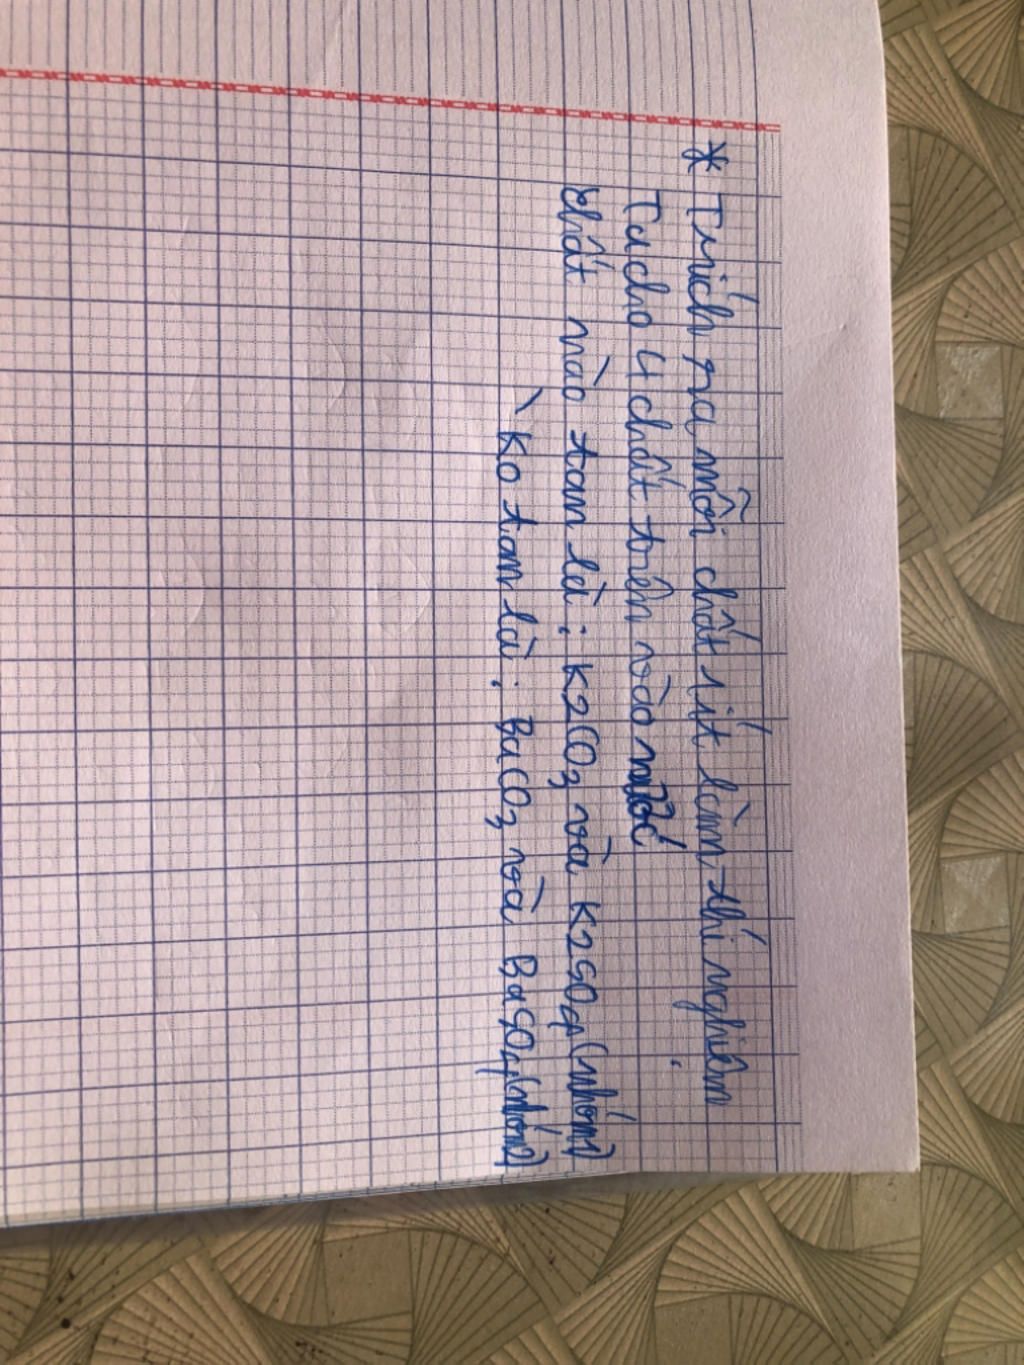 * Trích ra mỗi chất 1 ít làm thí nghiệm
Ta cho 4 chất trên vào nước
Chất nào tan là : K2CO3 và K2SO4 (nhóm1)
\ Ko tan là : BaCO3 và BaSO4 (nhóm2)